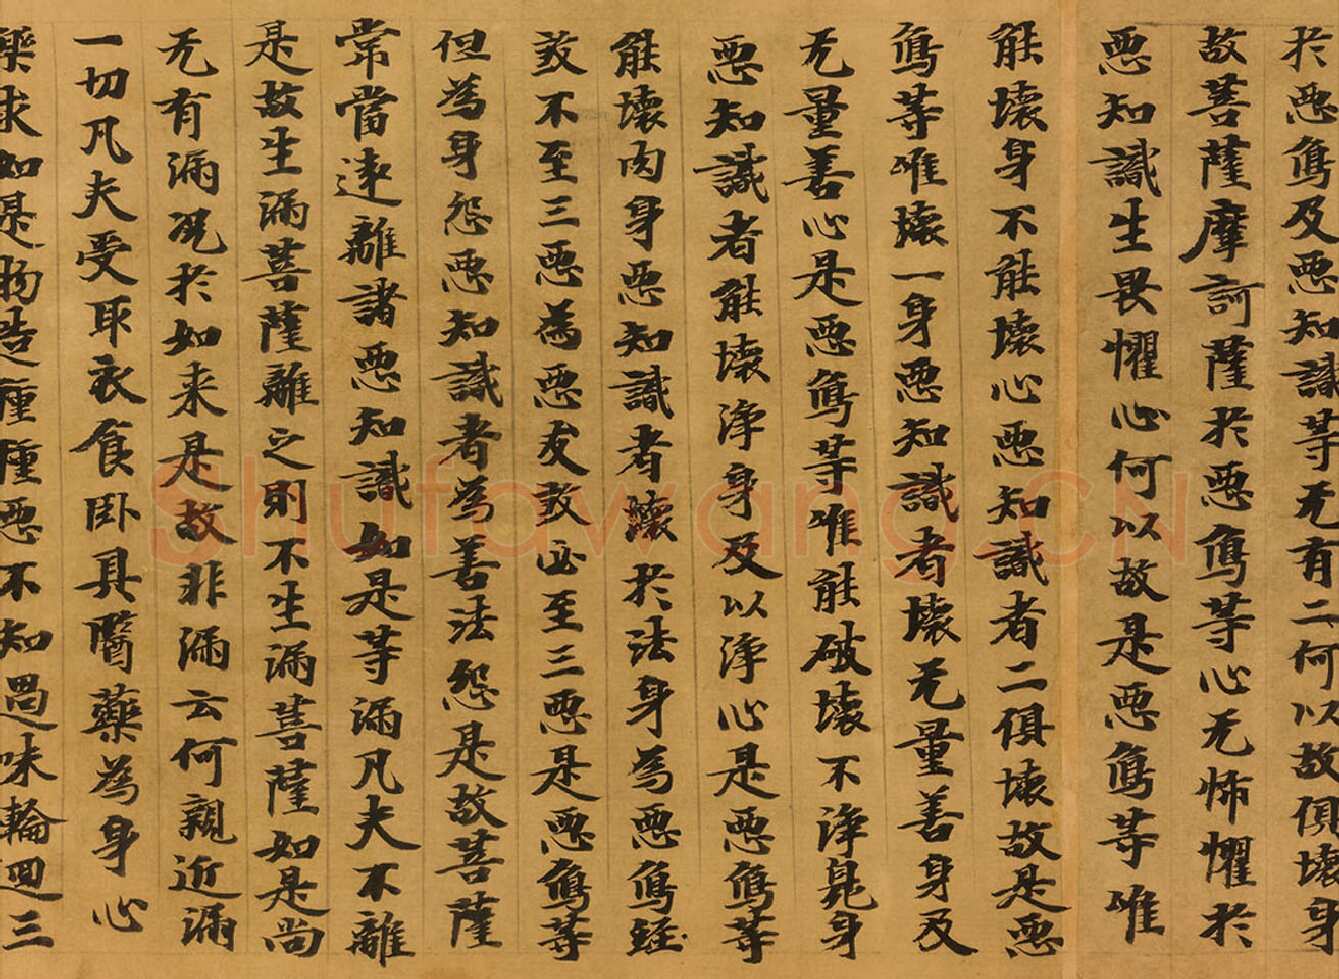 於惡象及惡知識等无有二何以故俱壞身
故菩薩摩訶薩於惡象等心无怖懼於
惡知識生畏懼心何以故是惡象等唯
能壞身不能壞心惡知識者二俱壞故是惡
象等唯壞一身惡知識者壞无量善身及
无量善心是惡象等唯能破壞不淨臭身
惡知識者能壞淨身及以淨心是惡象等
能壞肉身惡知識者壞於法身為惡象
煞不至三惡為惡友煞必至三惡是惡象等
但為身怨惡知識者為善法怨是故菩薩
常當遠離諸惡知識如是等漏凡夫不離
是故生漏菩薩離之則不生漏菩薩如是尚
无有漏況於如来是故非漏云何親近漏
一切凡夫受取衣食卧具醫藥為身心
樂求如是物造種種惡不知過味輪迴三
Shufawang.CN